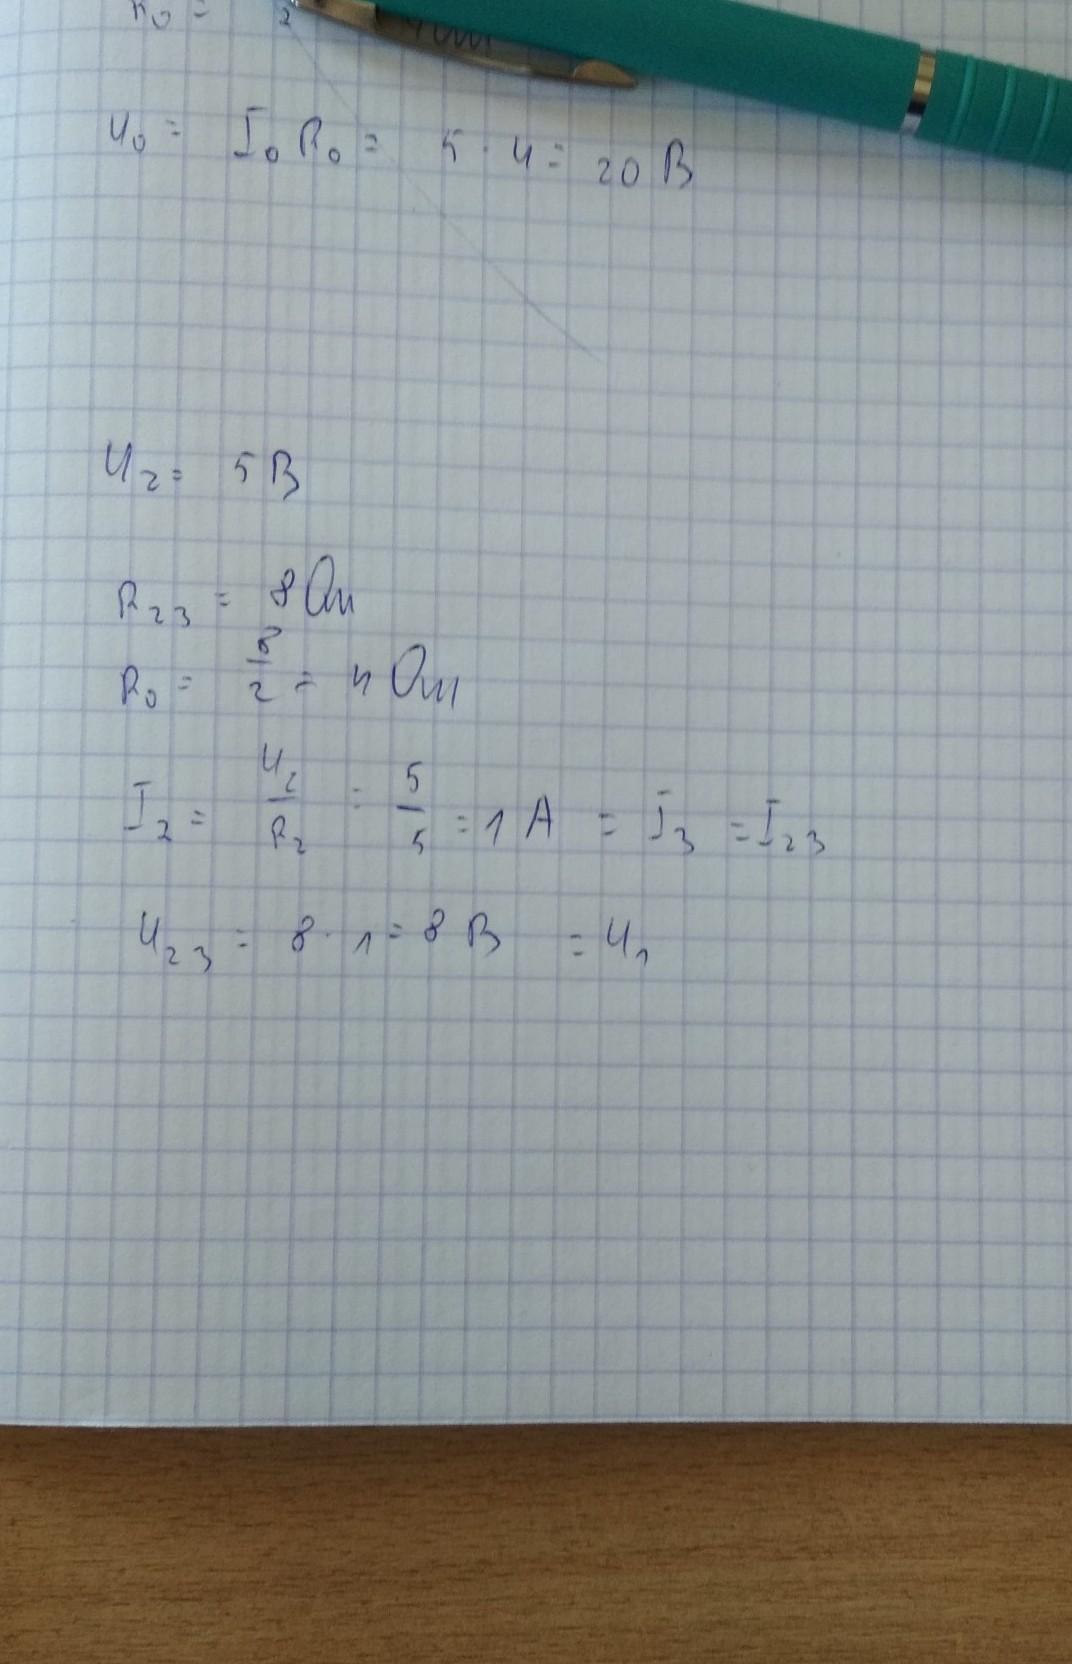 R₀ = 2
U₀ = I₀ R₀ = 5 · 4 = 20 В
U₂ = 5 В
R₂₃ = 8 Ом
R₀ = 8/2 = 4 Ом
I₂ = U₂/R₂ = 5/5 = 1 А = I₃ = I₂₃
U₂₃ = 8 · 1 = 8 В = U₁